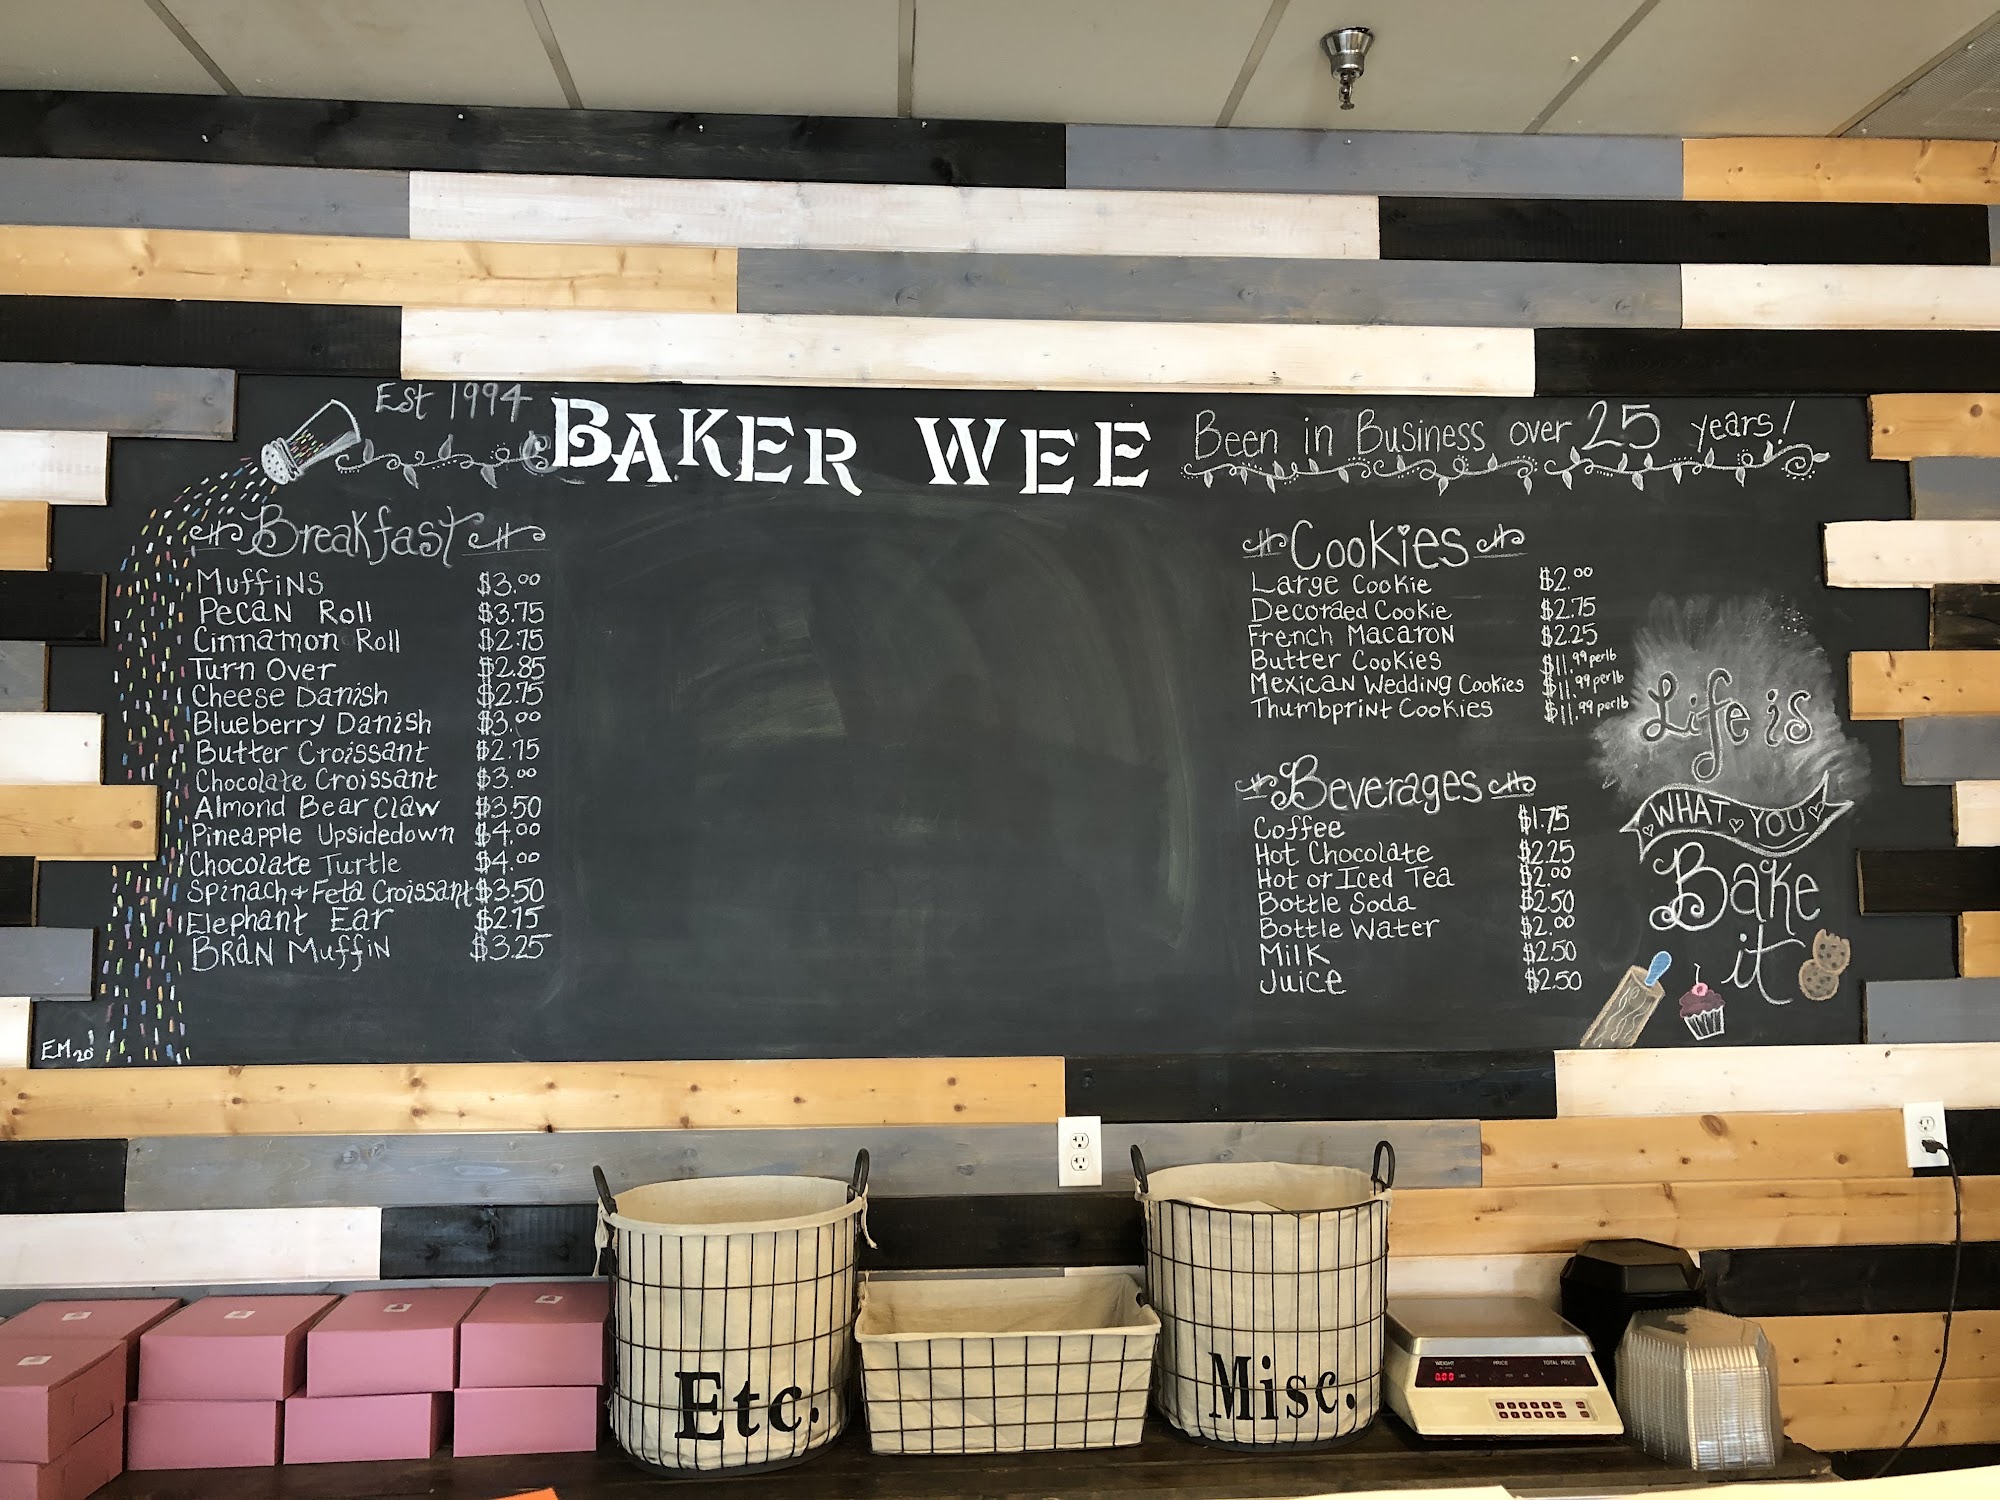 Est 1994
BAKER WEE
Been in Business over 25 years!
Breakfast
Muffins $3.00
Pecan Roll $3.75
Cinnamon Roll $2.75
Turn Over $2.85
Cheese Danish $2.75
Blueberry Danish $3.00
Butter Croissant $2.75
Chocolate Croissant $3.00
Almond Bear Claw $3.50
Pineapple Upsidedown $4.00
Chocolate Turtle $4.00
Spinach + Feta Croissant $3.50
Elephant Ear $2.75
Bran Muffin $3.25
EM 20
Cookies
Large Cookie $2.00
Decoraed Cookie $2.75
French Macaron $2.25
Butter Cookies $11.99 per lb
Mexican Wedding Cookies $11.99 per lb
Thumbprint Cookies $11.99 per lb
Beverages
Coffee $1.75
Hot Chocolate $2.25
Hot or Iced Tea $2.00
Bottle Soda $2.50
Bottle Water $2.00
Milk $2.50
Juice $2.50
Life is
WHAT YOU
Bake
it
Etc.
Misc.
WEIGHT PRICE TOTAL PRICE
0.00